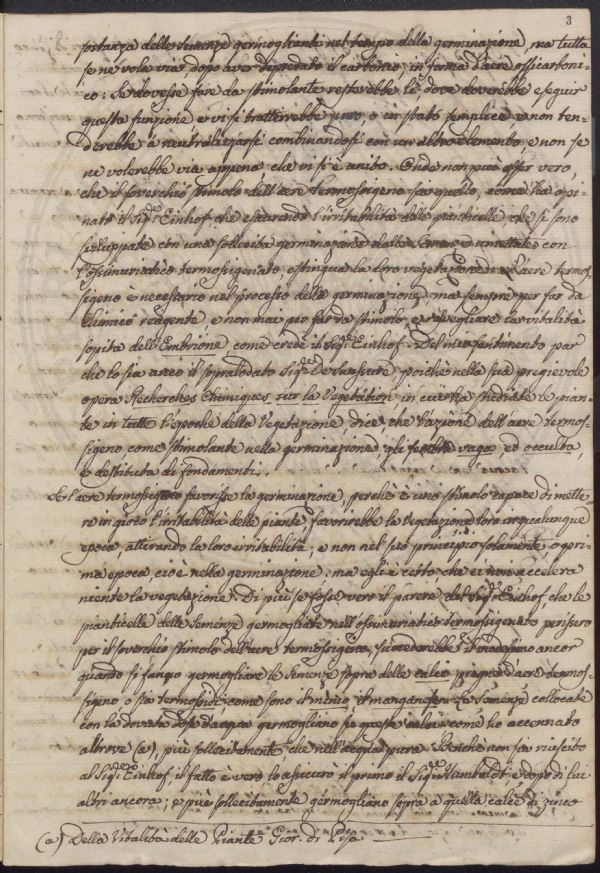 3
stanza delle semenze germoglianti nel tempo della germinazione, ma tutta
se ne vola via, dopo aver depredato il carbonio, in forma d'aere ossicarboni-
co: Se dovesse fare da stimolante resterebbe là dove dovrebbe eseguir
questa funzione e vi si tratterrebbe puro, o in stato semplice e non ten-
derebbe a neutralizzarsi combinandosi con un altro elemento, e non se
ne volerebbe via appena, che vi si è unito. Onde non può esser vero,
che il soverchio stimolo dell'aere termossigeno sia quello, come ha opi-
nato il Sig.r Einhof, che esaurendo l'irritabilità delle pianticelle che si sono
sviluppate con una sollecita germinazione dalle semenze umettate con
l'ossimuriatico termossigenato, estingua la loro vegetazione. L'aere termos-
sigeno è necessario nel processo della germinazione, ma sempre per far da
chimico reagente e non mai per far da stimolo, e risvegliare la vitalità
sopita dell'Embrione come crede il Sig.r Einhof. Del mio sentimento par
che lo sia anco il sopralodato Sig.r De Saussure poichè nella sua pregievole
opera Recherches Chimiques sur la Vegetation in cui ha studiato le pian-
te in tutte l'epoche della Vegetazione, dice che l'azione dell'aere termos-
sigeno come stimolante nella germinazione gli sembra vaga, ed occulta,
e destituta di fondamenti.
Se l'aere termossigeno favorisse la germinazione, perchè è uno stimolo capace di mette-
re in gioco l'irritabilità delle piante, favorirebbe la vegetazione loro in qualunque
epoca, attivando la loro irritabilità, e non nel suo principio solamente, o pri-
ma epoca, cioè nella germinazione: ma egli è certo, che ei non accelera
niente la vegetazione. Di più se fosse vero il parere del Sig.r Einhof, che le
pianticelle delle Semenze germogliate nell'ossimuriatico termossigenato perissero
per il soverchio stimolo dell'aere termossigeno, succederebbe il medesimo ancor
quando si fanno germogliare le Semenze sopra delle calci pregne d'aere termos-
sigeno o sia termossidi; come sono il minio, il manganese. Le Semenze collocate
con la dovuta dose d'acqua germogliano su queste calci come ho accennato
altrove (a), più sollecitamente, che nell'acqua pura. Benchè non sia riuscito
al Sig.r Einhof, il fatto è vero lo assicurò il primo il Sig.r Humboldt e dopo di lui
altri ancora; e più sollecitamente germogliano sopra a quella calce di zinco
(a) Della Vitalità delle Piante Gior. di Pisa